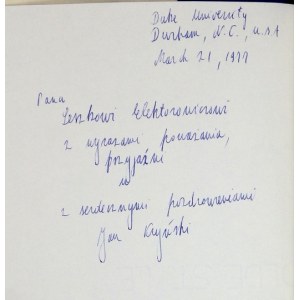 Duke University
Durham, N.C., U.S.A
March 21, 1977
Panu
Leszkowi Elektorowiczowi
z wyrazami poważania,
przyjaźni
z serdecznymi pozdrowieniami
Jan Kryński